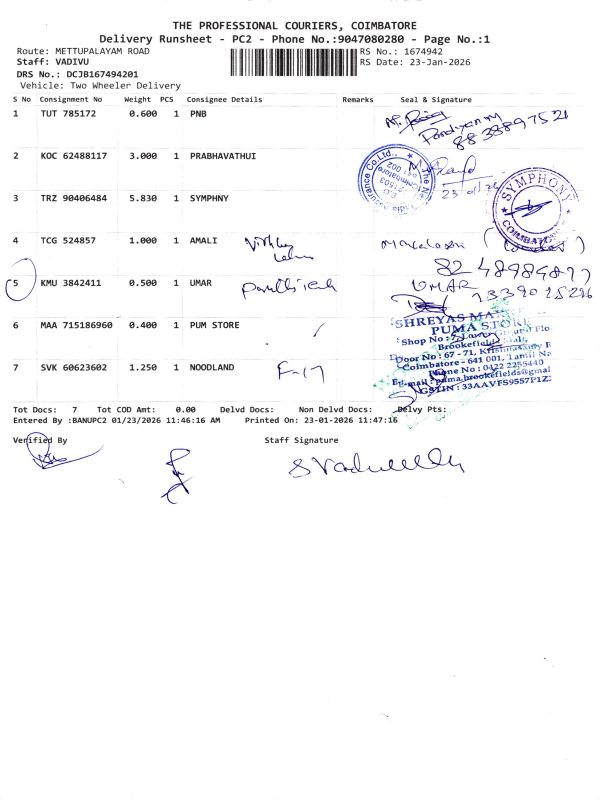 THE PROFESSIONAL COURIERS, COIMBATORE
Delivery Runsheet - PC2 - Phone No.:9047080280 - Page No.:1
Route: METTUPALAYAM ROAD RS No.: 1674942
Staff: VADIVU RS Date: 23-Jan-2026
DRS No.: DCJB167494201
Vehicle: Two Wheeler Delivery
S No Consignment No Weight PCS Consignee Details Remarks Seal & Signature
1 TUT 785172 0.600 1 PNB
Pandiyan M
8838897521
2 KOC 62488117 3.000 1 PRABHAVATHUI
3 TRZ 90406484 5.830 1 SYMPHNY
SYMPHONY
COIMBATORE
4 TCG 524857 1.000 1 AMALI
5 KMU 3842411 0.500 1 UMAR
UMAR
6 MAA 715186960 0.400 1 PUM STORE
SHREYAS
PUMA STORE
Shop No : 7, Ground Flo
Brookefield Mall,
Door No : 67 - 71, Krishnasamy R
Coimbatore - 641 001, Tamil Na
Phone No : 0422 2255440
E-mail : puma.brookefields@gmai
GSTIN : 33AAVFS9557P1Z
7 SVK 60623602 1.250 1 NOODLAND F-17
Tot Docs: 7 Tot COD Amt: 0.00 Delvd Docs: Non Delvd Docs: Delvy Pts:
Entered By :BANUPC2 01/23/2026 11:46:16 AM Printed On: 23-01-2026 11:47:16
Verified By Staff Signature